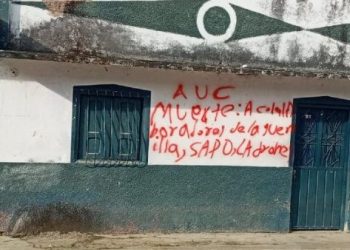 AUC
Muerte: A colabo
boradores de la guerr
illas, SAPO, LAdrones